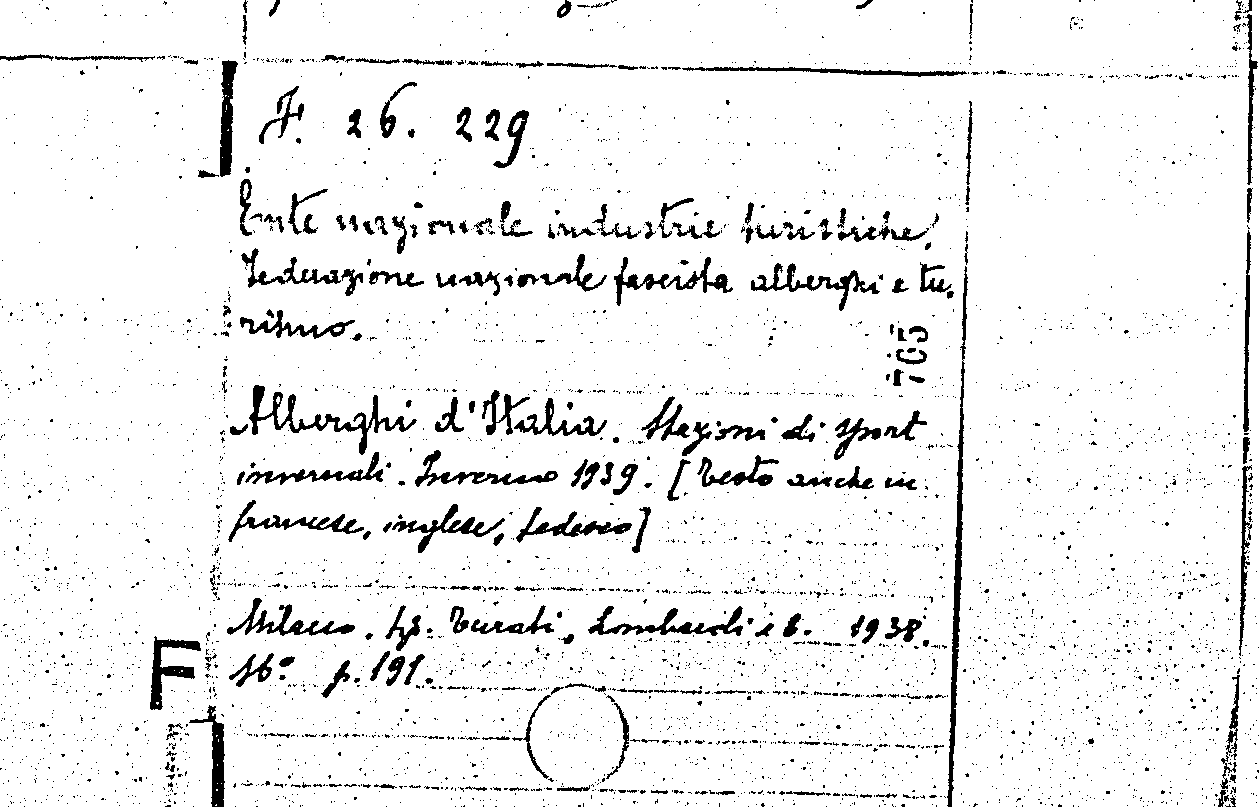 F. 26. 229
Ente nazionale industrie turistiche.
Federazione nazionale fascista alberghi e tu-
rismo.
705
Alberghi d'Italia. Stazioni di sport
invernali. Inverno 1939. [Testo anche in
francese, inglese, tedesco]
Milano. tip. Turati, Lombardi e C. 1938.
16° p. 191.
F